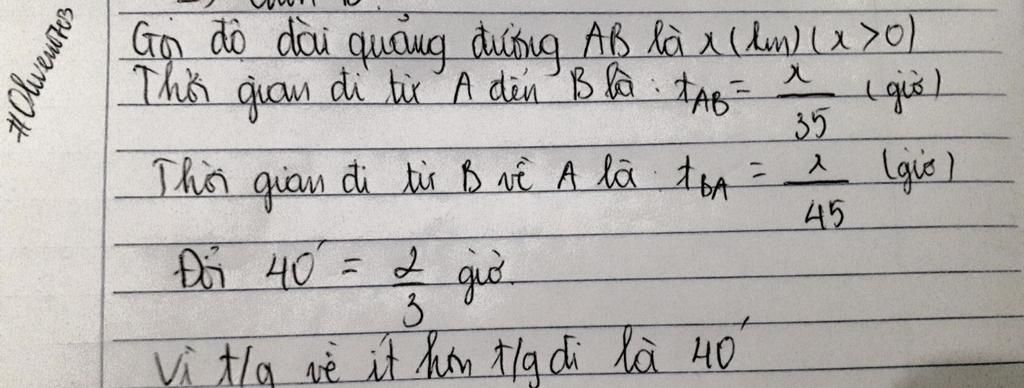 #Olivenotes
Gọi độ dài quãng đường AB là x (km) (x > 0)
Thời gian đi từ A đến B là: t_AB = x/35 (giờ)
Thời gian đi từ B về A là t_BA = x/45 (giờ)
Đổi 40' = 2/3 giờ.
Vì t/g về ít hơn t/g đi là 40'